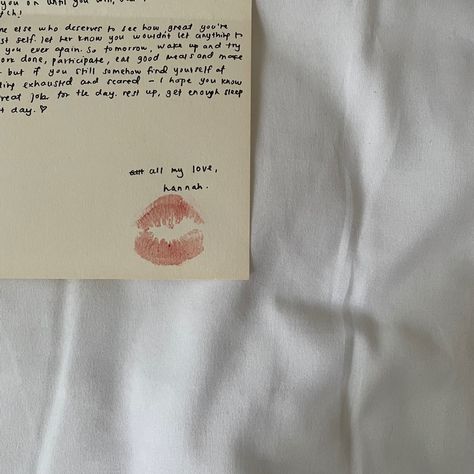 you on until you will,
ch!
ne else who deserves to see how great you're
st self. let her know you wouldn't let anything to
you ever again. so tomorrow, wake up and try
ork done, participate, eat good meals and make
but if you still somehow find yourself at
ling exhausted and scared — i hope you know
reat job for the day. rest up, get enough sleep
t day. ♡
all my love,
hannah.